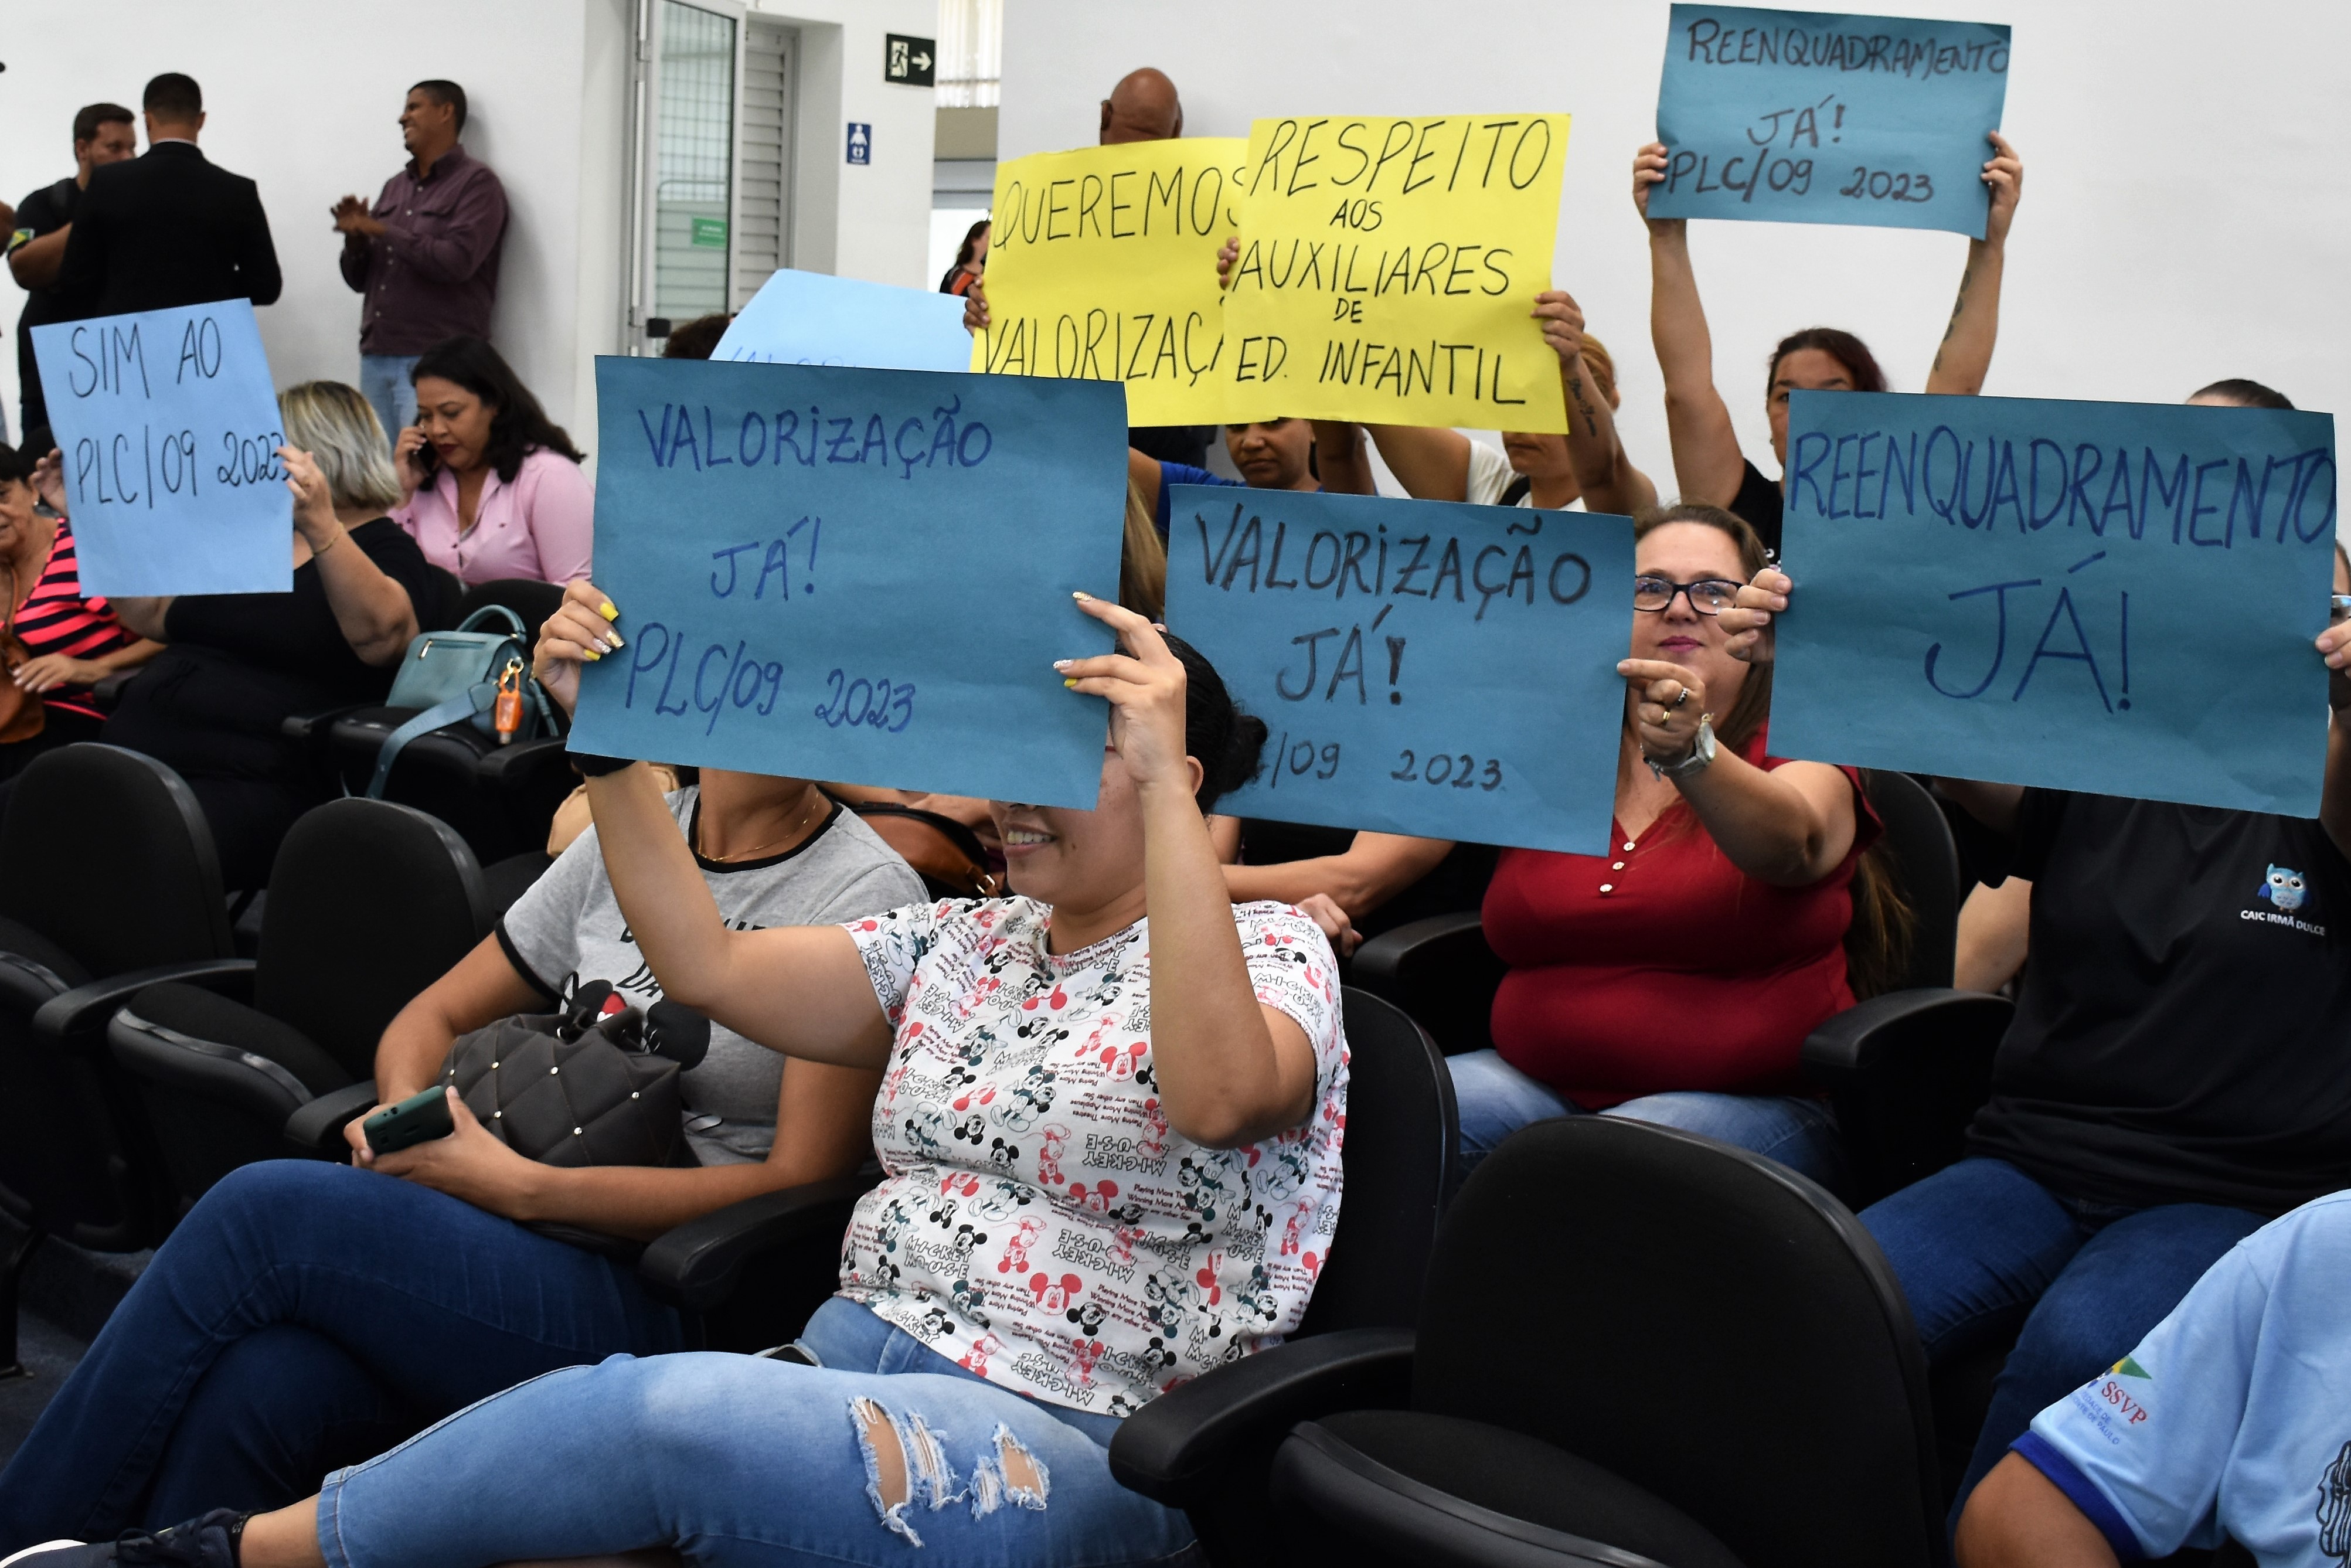 REENQUADRAMENTO
JÁ!
PLC/09 2023
RESPEITO
AOS
AUXILIARES
DE
ED. INFANTIL
QUEREMOS
SIM AO
PLC/09 2023
VALORIZAÇÃO
JÁ!
PLC/09 2023
VALORIZAÇÃO
JÁ!
/09 2023
REENQUADRAMENTO
JÁ!
CAIC IRMÃ DULCE
SSVP